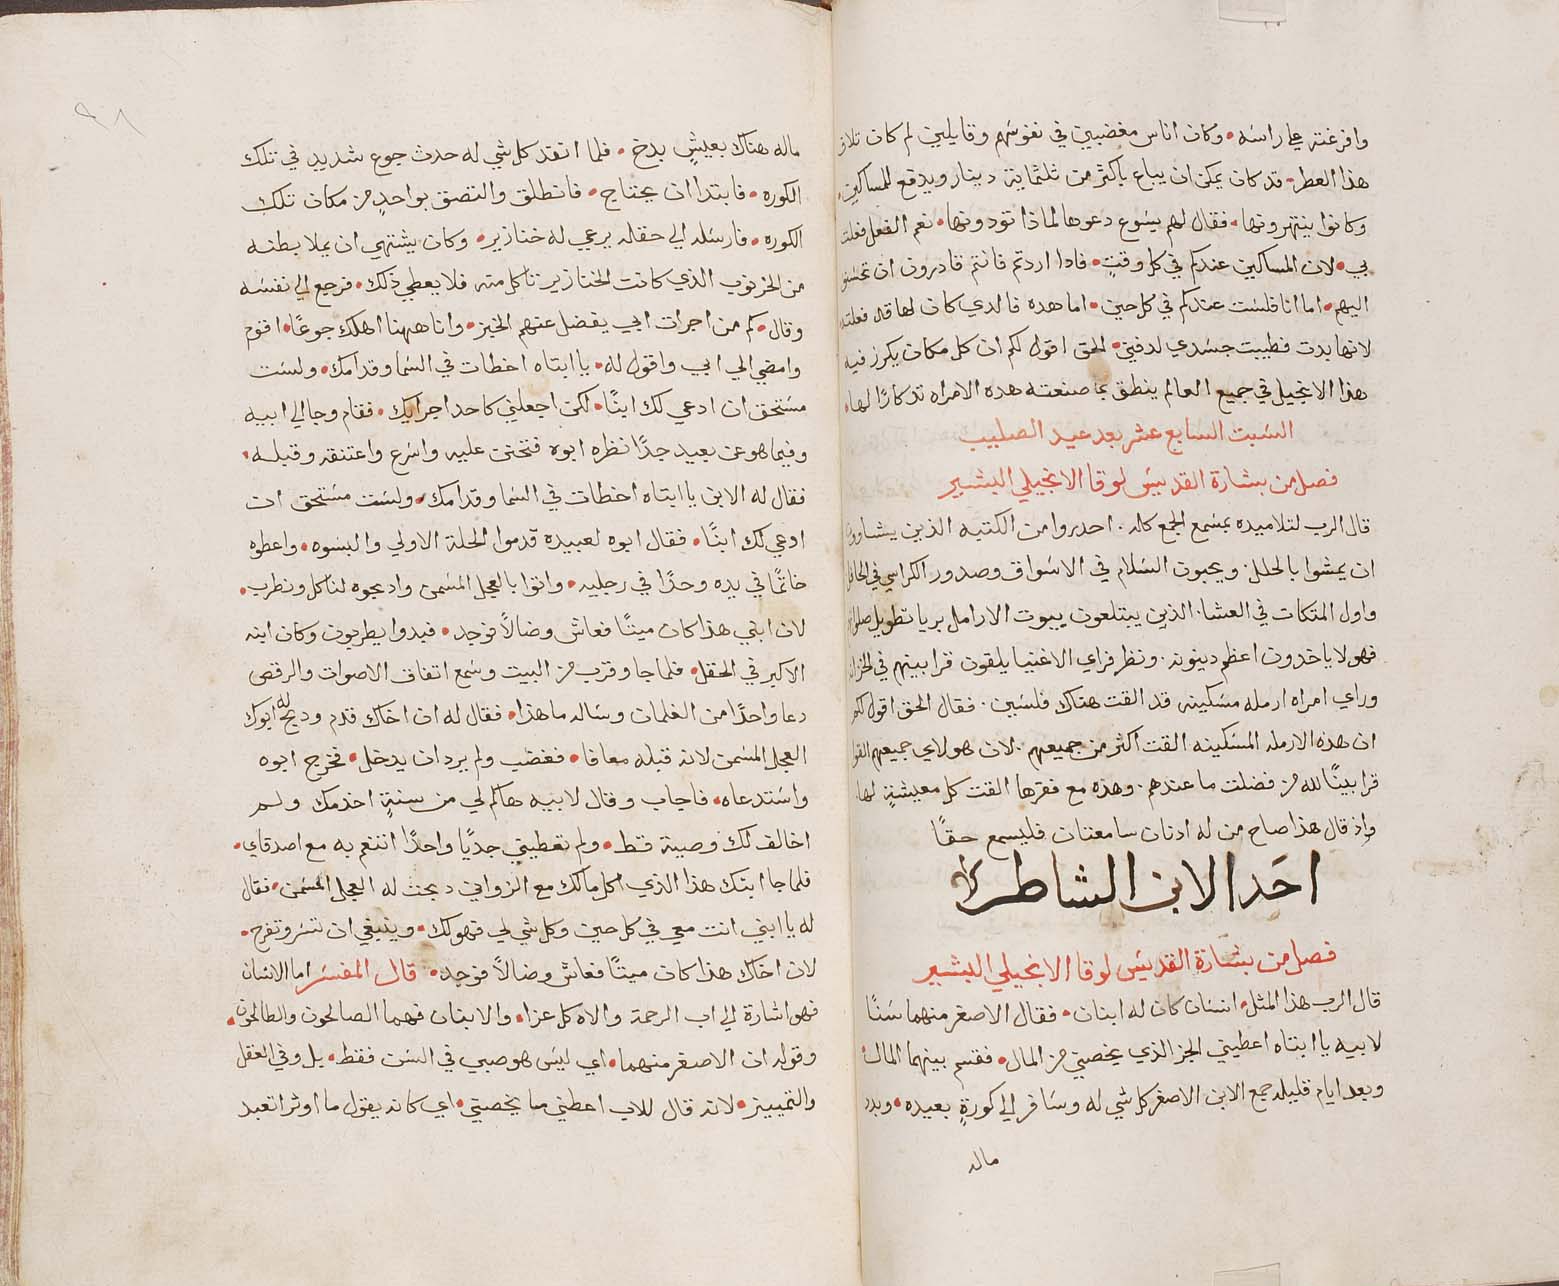 وافرغته علي راسه • وكان اناس مغضبين في نفوسهم وقايلين لم كان تلاف
هذا العطر • قد كان يمكن ان يباع باكثر من ثلثماية دينار ويدفع للمساكين •
وكانوا ينتهرونها • فقال لهم يسوع دعوها لماذا تودونها • نعم الفعل فعلت
بي • لان المساكين عندكم في كل وقتٍ • فادا اردتم فانتم قادرون ان تحسنو
اليهم • اما انا فلست عندكم في كل حين • اما هده فالدي كان لها قد فعلته
لانها بدت فطيبت جسدي لدفني • الحق اقول لكم ان كل مكان يكرز فيه
هذا الانجيل في جميع العالم ينطق بما صنعته هده الامراه تدكارًا لها •
السبت السابع عشر بعد عيد الصليب
فصل من بشارة القديس لوقا الانجيلي البشير
قال الرب لتلاميده بمسمع الجمع كله . احدروا من الكتبه الذين يشاوون
ان يمشوا بالحلل . ويحبون السلام في الاسواق وصدور الكراسي في المحافل
واول المتكات في العشا . الذين يبتلعون بيوت الارامل بريا تطويل صلواتهم
فهولا ياخدون اعظم دينونه . ونظر فراي الاغنيا يلقون قرابينهم في الخزانه
وراي امراه ارمله مسكينه قد القت هناك فلسين . فقال الحق اقول لكم
ان هذه الارمله المسكينه القت اكثر من جميعهم . لان هولاي جميعهم القوا
قرابينًا لله من فضلت ما عندهم . وهذه مع فقرها القت كل معيشةٍ لها
واذ قال هذا صاح من له ادنان سامعتان فليسمع حقًا
احد الابن الشاطر
فصل من بشارة القديس لوقا الانجيلي البشير
قال الرب هذا المثل • انسان كان له ابنان • فقال الاصغر منهما سنًا
لابيه يا ابتاه اعطيني الجز الذي يخصني من المال • فقسم بينهما المال
وبعد ايام قليله جمع الابن الاصغر كل شي له وسافر الي كورةٍ بعيده • وبدد
ماله
٩٨
ماله هناك بعيشٍ بدخ • فلما انفد كل شي له حدث جوع شديد في تلك
الكوره • فابتدا ان يحتاج • فانطلق والتصق بواحدٍ من مكان تلك
الكوره • فارسله الي حقله يرعي له خنازير • وكان يشتهي ان يملا بطنه
من الخرنوب الذي كانت الخنازير تاكل منه فلا يعطي ذلك • فرجع الي نفسه
وقال • كم من اجرات ابي يفضل عنهم الخبز • وانا ههنا اهلك جوعًا • اقوم
وامضي الي ابي واقول له • يا ابتاه اخطات في السما وقدامك • ولست
مستحق ان ادعي لك ابنًا • لكن اجعلني كاحد اجرايك • فقام وجا الي ابيه
وفيما هو عن بعيد جدًا نظره ابوه فتحنن عليه واسرع واعتنقه وقبله •
فقال له الابن يا ابتاه اخطات في السما وقدامك • ولست مستحق ان
ادعي لك ابنًا • فقال ابوه لعبيده قدموا الحلة الاولي والبسوه • واعطوه
خاتمًا في يده وحدًا في رجليه • واتوا بالعجل المسمن وادبحوه لناكل ونطرب •
لان ابني هذا كان ميتًا فعاش وضالاً فوجد • فبدوا يطربون وكان ابنه
الاكبر في الحقل • فلما جا وقرب من البيت وسمع اتفاق الاصوات والرقص
دعا واحدًا من الغلمان وساله ما هذا • فقال له ان اخاك قدم ودبح له ابوك
العجل المسمن لانه قبله معافا • فغضب ولم يرد ان يدخل • فخرج ابوه
واستدعاه • فاجاب وقال لابيه ها كم لي من سنةٍ اخدمك ولم
اخالف لك وصية قط • ولم تعطيني جديًا واحدًا اتنعم به مع اصدقاي •
فلما جا ابنك هذا الذي اكل مالك مع الزواني دبحت له العجل المسمن • فقال
له يا ابني انت معي في كل حين وكل شي لي فهو لك • وينبغي ان تسر وتفرح •
لان اخاك هذا كان ميتًا فعاش وضالاً فوجد • قال المفسر اما الانسان
فهو اشارة الي اب الرحمة والاه كل عزا • والابنان فهما الصالحون والطالحون •
وقوله ان الاصغر منهما • اي ليس هو صبي في السن فقط • بل وفي العقل
والتمييز • لانه قال للاب اعطني ما يخصني • اي كانه يقول ما اوثر اتعبد